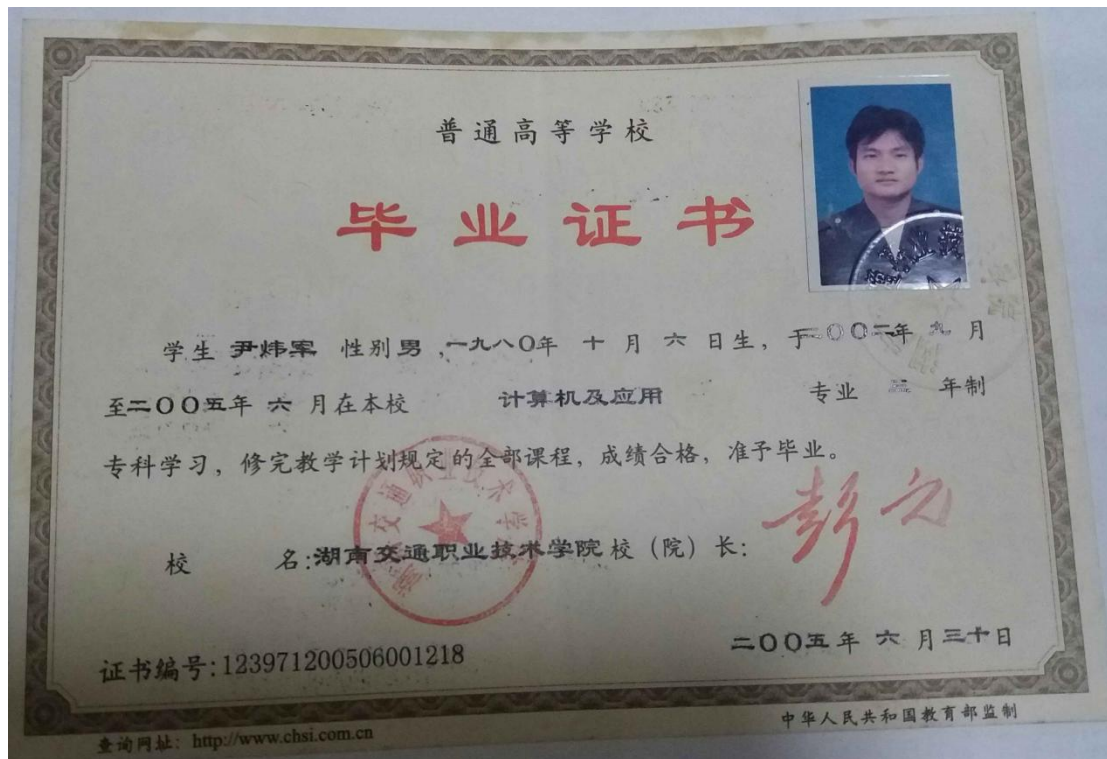 普通高等学校
毕业证书
学生 尹炜军 性别男,一九八〇年 十 月 六 日生,于二〇〇二年 九 月
至二〇〇五年 六 月在本校 计算机及应用 专业 三 年制
专科学习,修完教学计划规定的全部课程,成绩合格,准予毕业。
校 名:湖南交通职业技术学院 校(院)长:
二〇〇五年 六 月三十日
证书编号:123971200506001218
中华人民共和国教育部监制
查询网址:http://www.chsi.com.cn